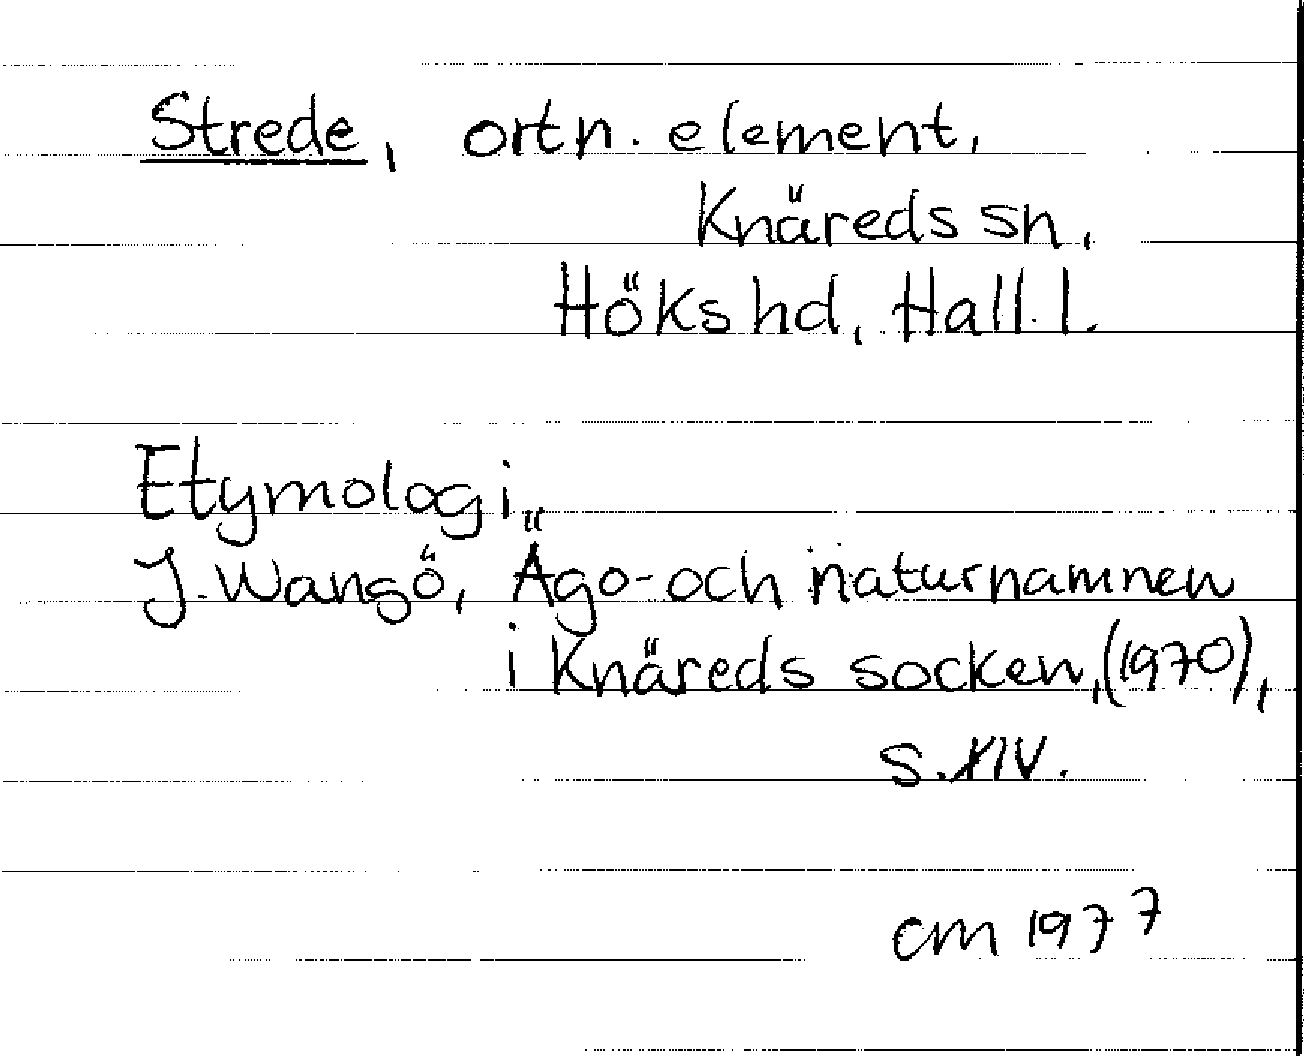 Strede, ortn. element,
Knäreds sn,
Höks hd, Hall. l.
Etymologi,
J. Wangö, Ägo- och naturnamnen
i Knäreds socken, (1970),
s. XIV.
cm 1977